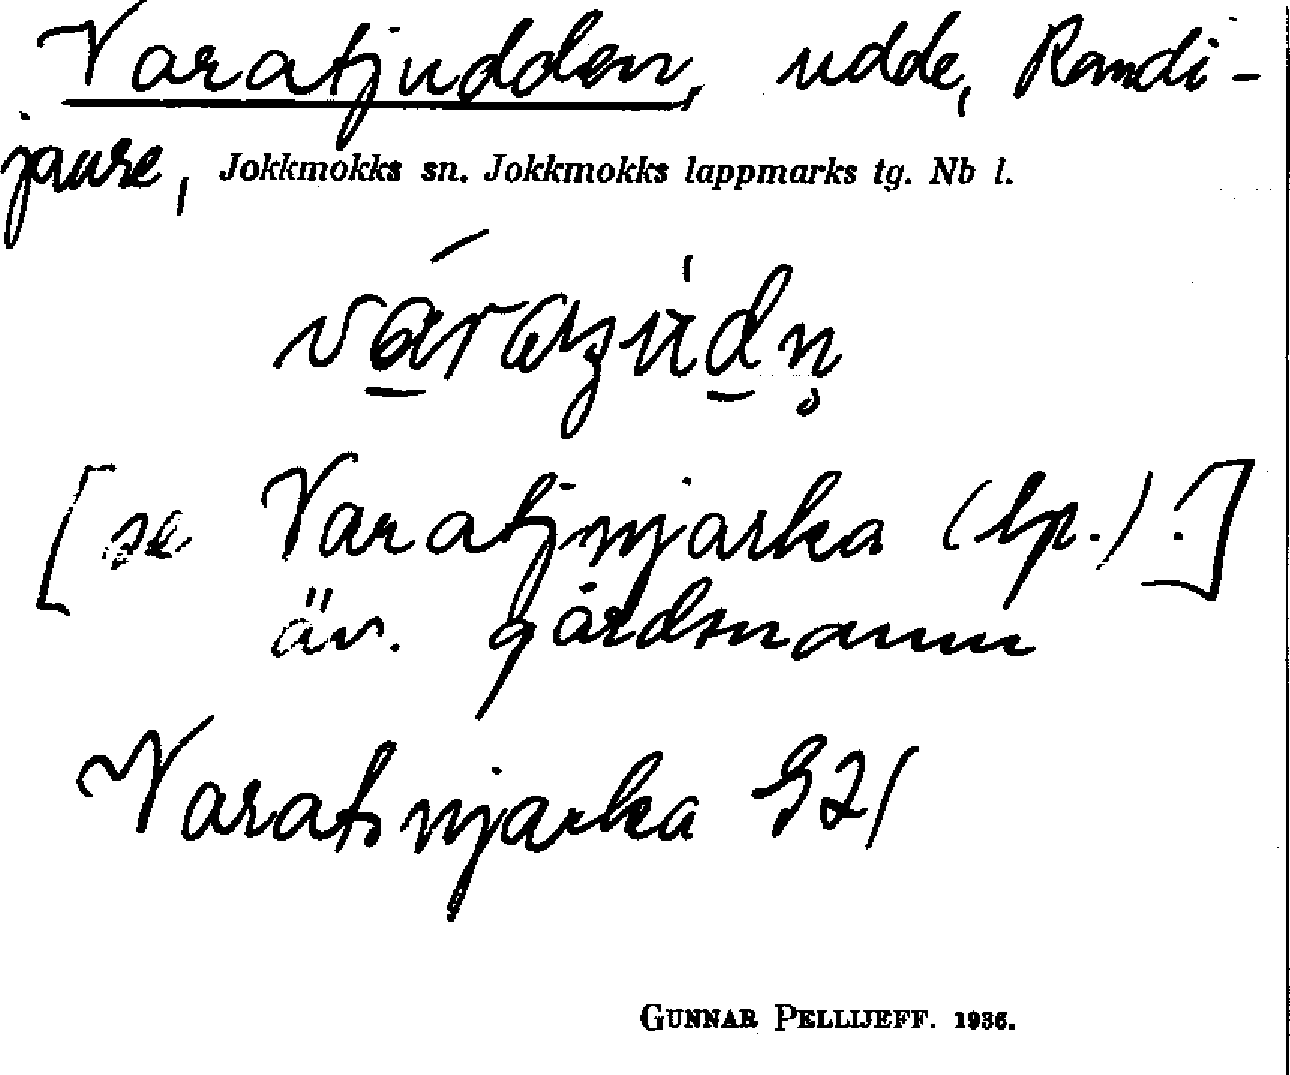 Varatjudden, udde, Randi-
jaure, Jokkmokks sn. Jokkmokks lappmarks tg. Nb l.
[se Varatjnjarka (lp.)!]
äv. gårdsnamn
Varatsnjarka G21
GUNNAR PELLIJEFF. 1936.